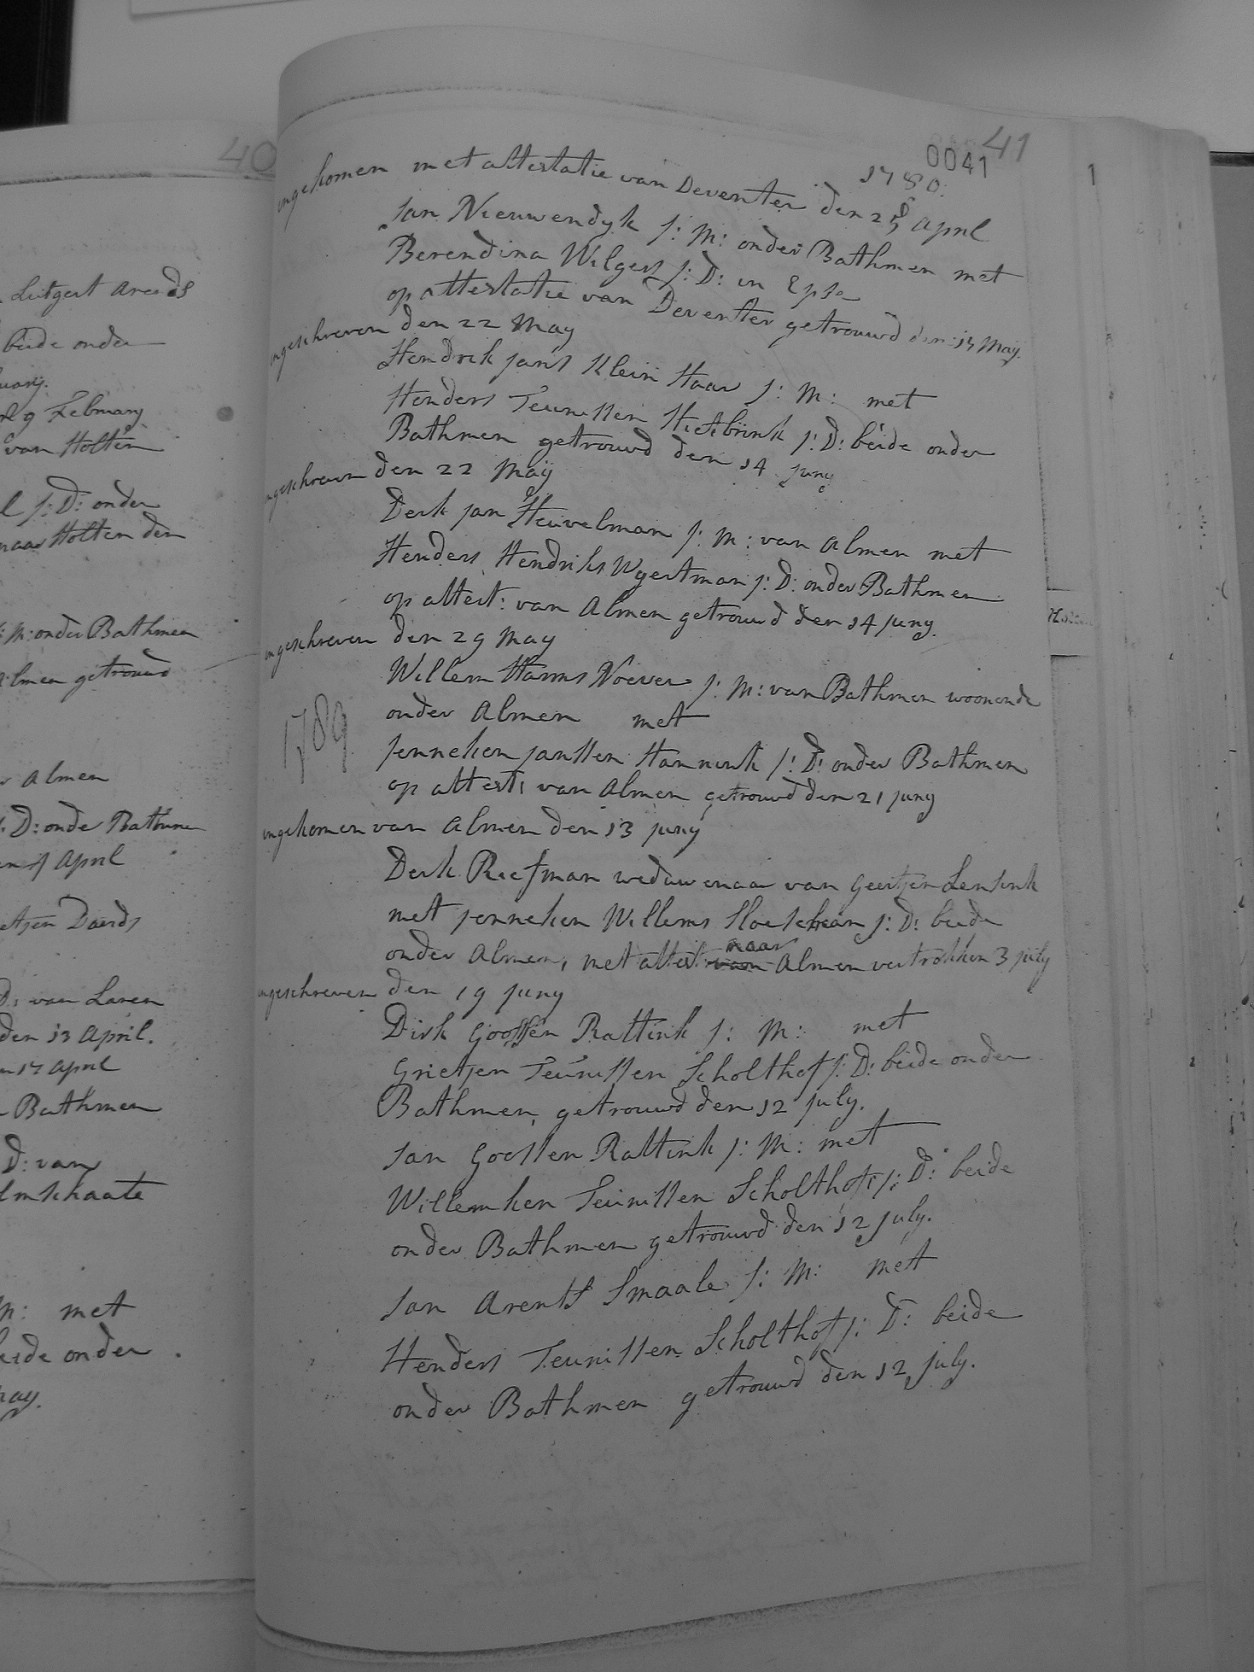 40
Lutgert Arends
beide onder
9 Febmary
van Holten
j: D: onder
naar Holten den
M: onder Bathmen
Almen getrouwd
Almen
D: onder Bathmen
April
Daerds
D: van Laren
den 13 April.
17 April
Bathmen
D: van
met
beide onder
41
0041
1780.
ingekomen met attestatie van Deventer den 28 April
Jan Nieuwendyk j: M: onder Bathmen met
Berendina Wilgers j: D: in Epse
op attestatie van Deventer getrouwd den 15 May.
ingeschreven den 22 May
Hendrik Jans Klein Haar j: M: met
Henders Teunissen Hietbrink j: D: beide onder
Bathmen getrouwd den 14 Juny
ingeschreven den 22 Maÿ
Derk Jan Heuvelman j: M: van Almen met
Henders Hendriks Wyertman j: D: onder Bathmen
op attest: van Almen getrouwd den 14 Juny.
ingeschreven den 29 May
Willem Harms Noever j: M: van Bathmen woonende
onder Almen met
1789
Jenneken Janssen Hannink j: D: onder Bathmen
op attest: van Almen getrouwd den 21 Juny
ingekomen van Almen den 13 Juny
Derk Reefman weduwenaar van Geertjen Lensink
met Jenneken Willems j: D: beide
onder Almen, met attest: van naar Almen vertrokken 3 July
ingeschreven den 19 Juny
Dirk Goossen Rattink j: M: met
Grietjen Teunissen Scholthof j: D: beide onder
Bathmen, getrouwd den 12 July.
Jan Goossen Rattink j: M: met
Willemken Teunissen Scholthof j: D: beide
onder Bathmen getrouwd den 12 July.
Jan Arents Smaale j: M: met
Henders Teunissen Scholthof j: D: beide
onder Bathmen getrouwd den 12 July.
1